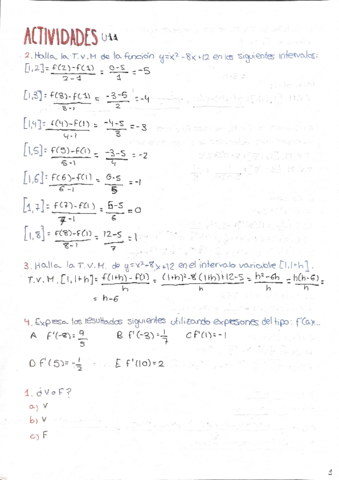 ACTIVIDADES U11
2. Halla la T.V.M de la función y=x²-8x+12 en los siguientes intervalos:
[1,2]= f(2)-f(1)/2-1 = 0-5/1 = -5
[1,3]= f(3)-f(1)/3-1 = -3-5/2 = -4
[1,4]= f(4)-f(1)/4-1 = -4-5/3 = -3
[1,5]= f(5)-f(1)/5-1 = -3-5/4 = -2
[1,6]= f(6)-f(1)/6-1 = 0-5/5 = -1
[1,7]= f(7)-f(1)/7-1 = 5-5/6 = 0
[1,8]= f(8)-f(1)/8-1 = 12-5/7 = 1
3. Halla la T.V.M. de y=x²-8x+12 en el intervalo variable [1,1+h].
T.V.M. [1,1+h] = f(1+h)-f(1)/h = (1+h)²-8(1+h)+12-5/h = h²-6h/h = h(h-6)/h =
= h-6
4. Expresa los resultados siguientes utilizando expresiones del tipo: f'(a)=...
A f'(-8)= 9/5 B f'(-3)= 1/7 C f'(1)=-1
D f'(5)=-1/2 E f'(10)=2
1. ¿V o F?
a) V
b) V
c) F
1